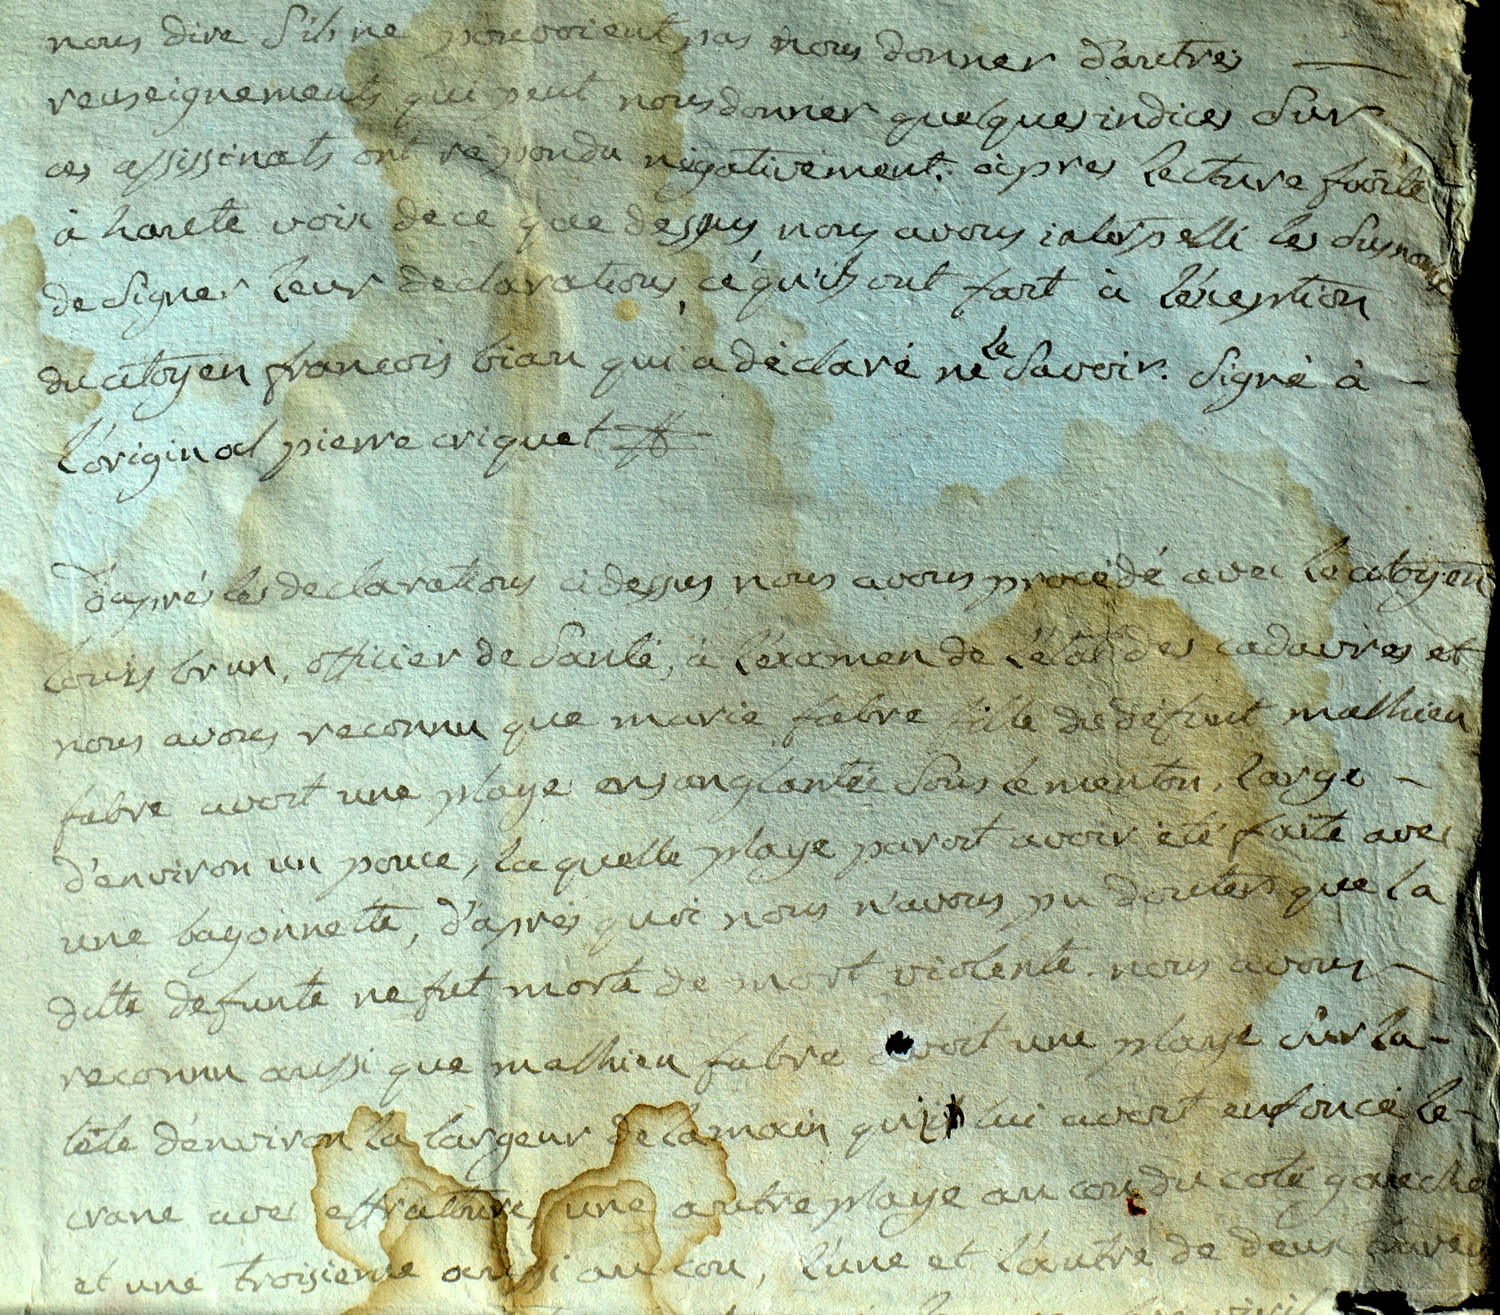 nous dire S'ils ne pouvoient pas nous donner d'autres
renseignements qui peut nous donner quelques indices Sur
ces assissinats ont répondu négativement. après lecture faite
à haute voix de ce que dessus nous avons interpellé les Susnomé
de Signer leur declarations, ce qu'ils ont fait à l'exeption
du citoyen francois bian qui a déclaré ne le Savoir. Signé à
l'original pierre criquet
d'aprés les declarations cidessus nous avons procédé avec le citoyen
louis brun, officier de Santé, à l'examen de l'état des cadavres et
nous avons reconnu que marie fabre fille du défunt mathieu
fabre avoit une playe ensanglantée Sous le menton, large
d'environ un pouce, laquelle playe paroit avoir été faite avec
une bayonnette, d'après quoi nous n'avons pu douter que la
ditte defunte ne fut morte de mort violente. nous avons
reconnu aussi que mathieu fabre avoit une playe Sur la
tête d'environ la largeur de la main qui lui avoit enfoncé le
crane avec effratture, une autre playe au cou du coté gauche
et une troisieme aussi au cou, l'une et l'autre de deux